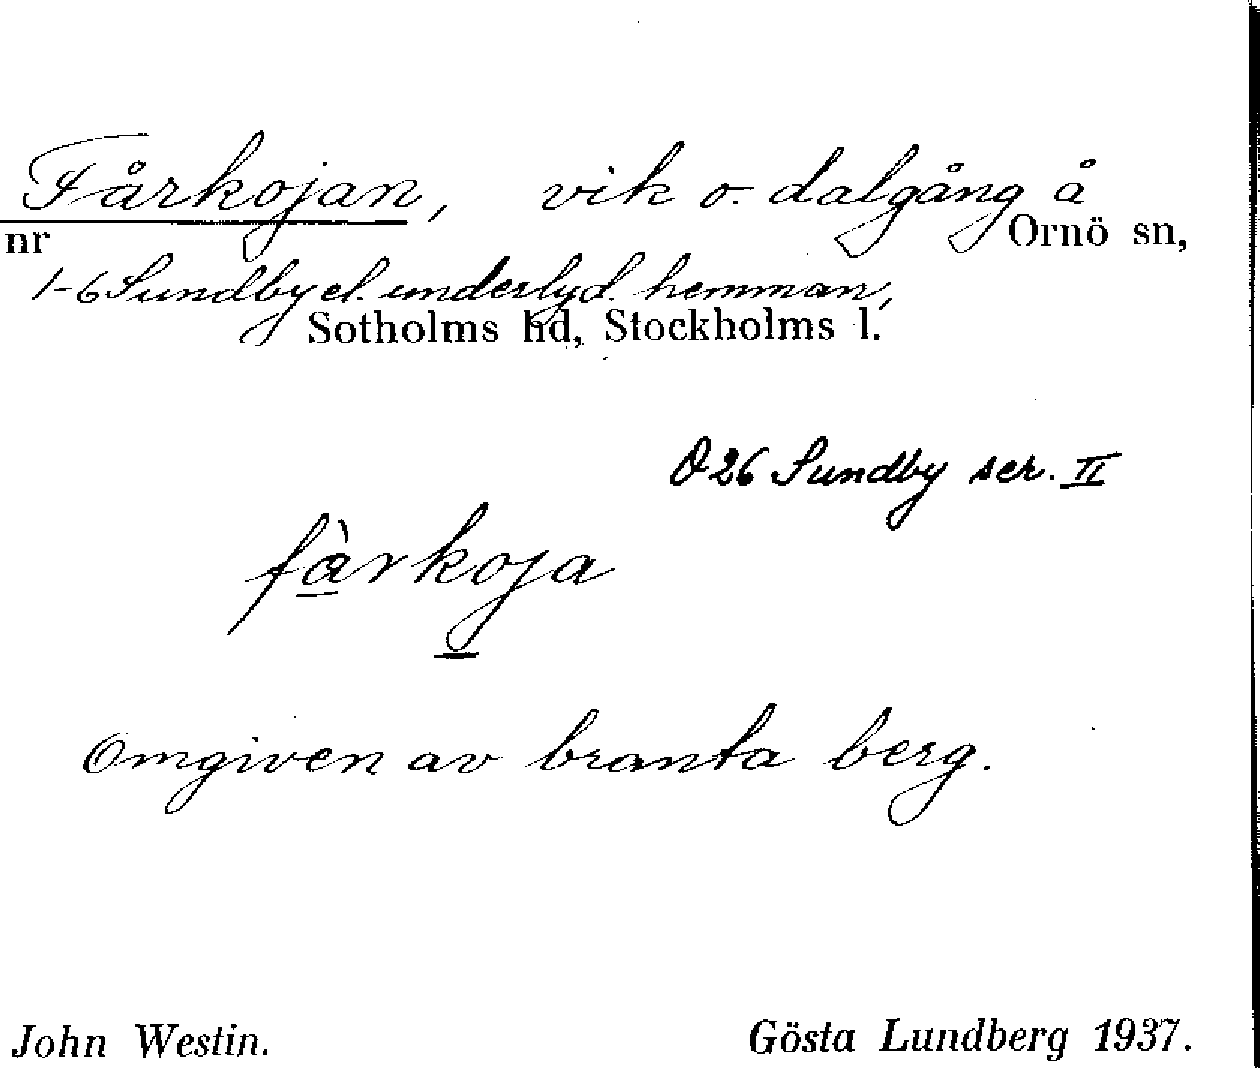 Fårkojan, vik o. dalgång å
nr Ornö sn,
1-6 Sundby el. underlyd. hemman,
Sotholms hd, Stockholms l.
O 26 Sundby ser. II
fàrkoja
Omgiven av branta berg.
John Westin. Gösta Lundberg 1937.